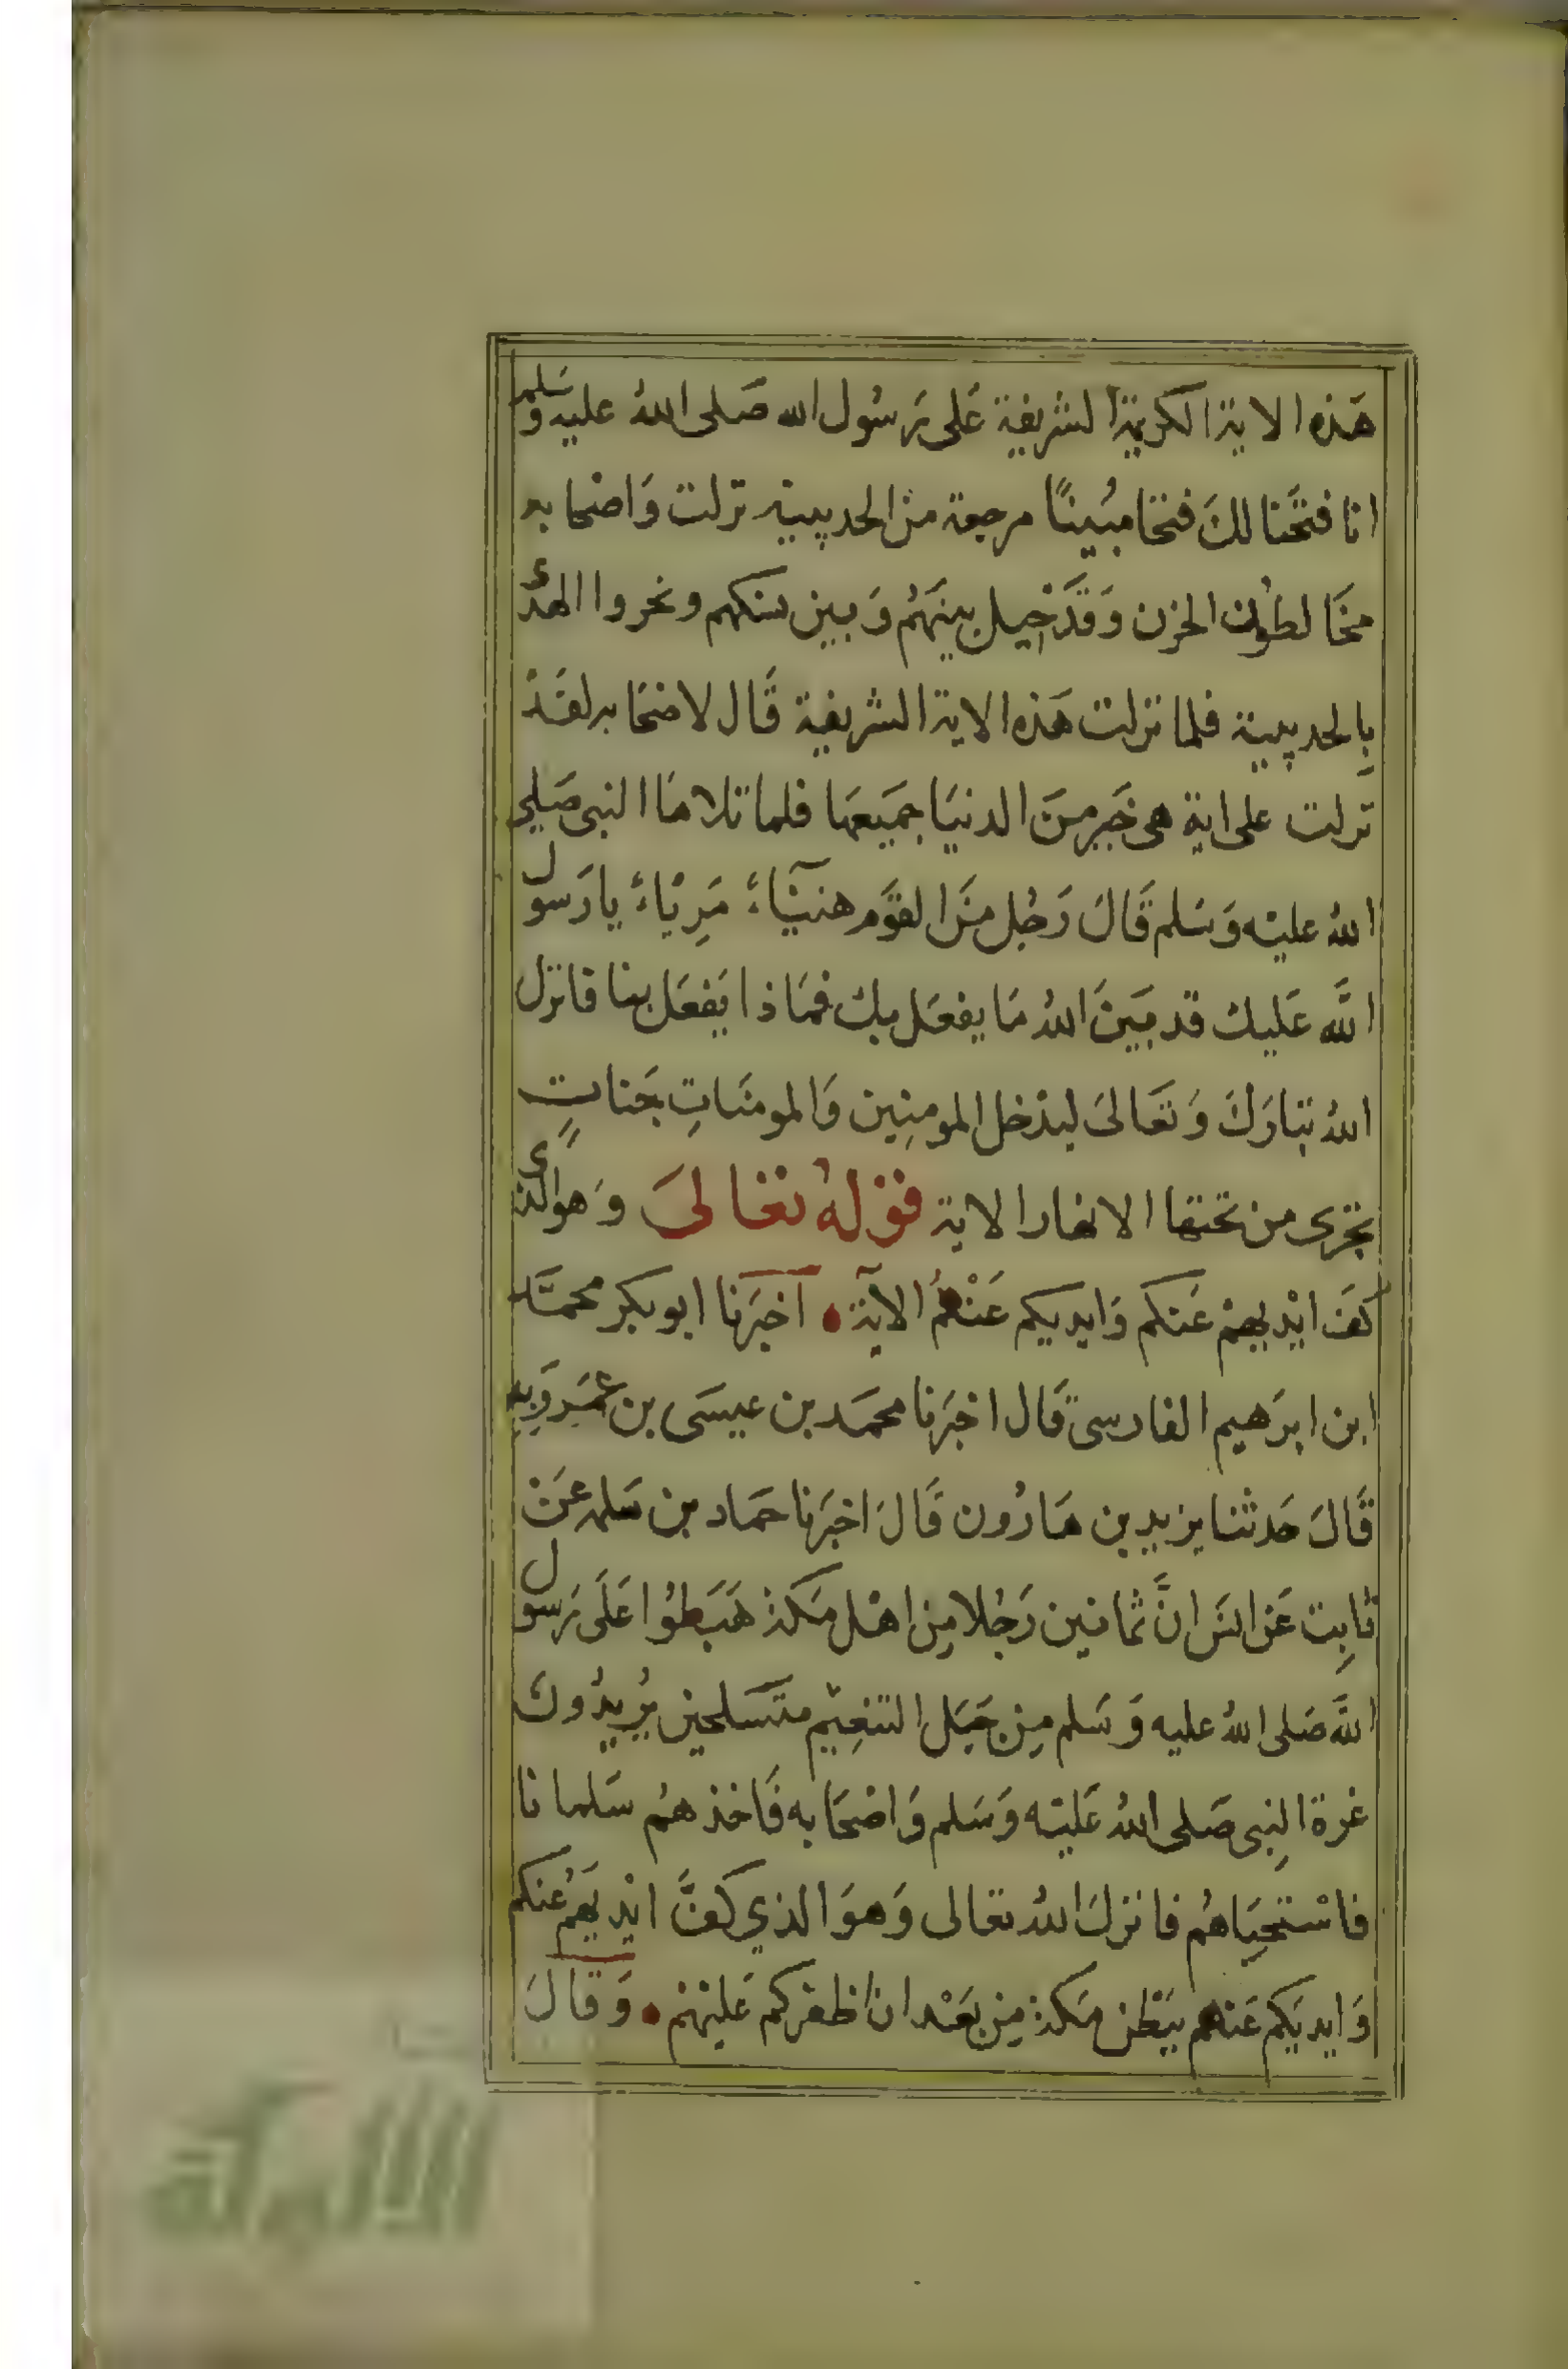 هَذه الاية الكريمة الشريفة عَلى رَسُول الله صَلى اللهُ عليه وسَلم
انا فتحَنا لكَ فتحا مبُينًا مرجعة من الحديبية نزلت وَاصْحابه
مخَالطون الحزن وَقدَ حيل بينَهُم وَبين نسكهم ونحروا الهدْي
بِالحديبية فلما نزلت هَذه الاية الشريفة قَال لاصْحَابه لقَدْ
نزلت على اية هى خَير مِنَ الدنيَا جمَيعهَا فلما تلاهَا النبى صَلى
اللهُ عليْه وَسَلم قَالَ رَجُل منَ القوَم هنيْئاءً مَرِيْاءً يا رَسول
اللَّه عَليك قد بَينَ اللهُ مَا يفعَل بك فمَاذا يَفعَل بنا فانزل
اللهُ تبَارَكَ وَتعَالىَ ليدْخل المومنِين وَالمومنَاتِ جَناتٍ
تجْرى من تحتها الانهار الاية قوْلهُ تعَالىَ وَهو الذي
كفَ ايْديهمْ عَنكم وَايديكم عَنْهُم الآية • اَخبَرَنا ابو بكر محمَّد
ابن ابرَهيم الفارسى قَال اخبَرَنا محمَد بن عيسَى بن عمَروَيه
قَالَ حَدثنا يزيد بن هَارُون قَالَ اخبَرَنا حمَاد بن سَلمه عَنْ
ثابِت عَن انسَ انَّ ثمانين رَجُلا مِن اهْل مَكة هَبَطوُا عَلَى رَسول
اللَّه صَلى اللهُ عليه وَسَلم مِن جَبَل التنعِيْم متسَلحين يُريدُون
غرة النِبى صَلى اللهُ عَليْه وَسَلم وَاصْحَابه فَاخذهُم سَلما نا
فاسْتحيَاهُم فانزلَ اللهُ تعالى وَهوَ الذي كفَّ ايْديَهُم عنكم
وَايديَكم عَنهم ببَطْن مَكة مِن بَعْد ان اظفركم عَليْهمْ • وَقَالَ
الألوكة